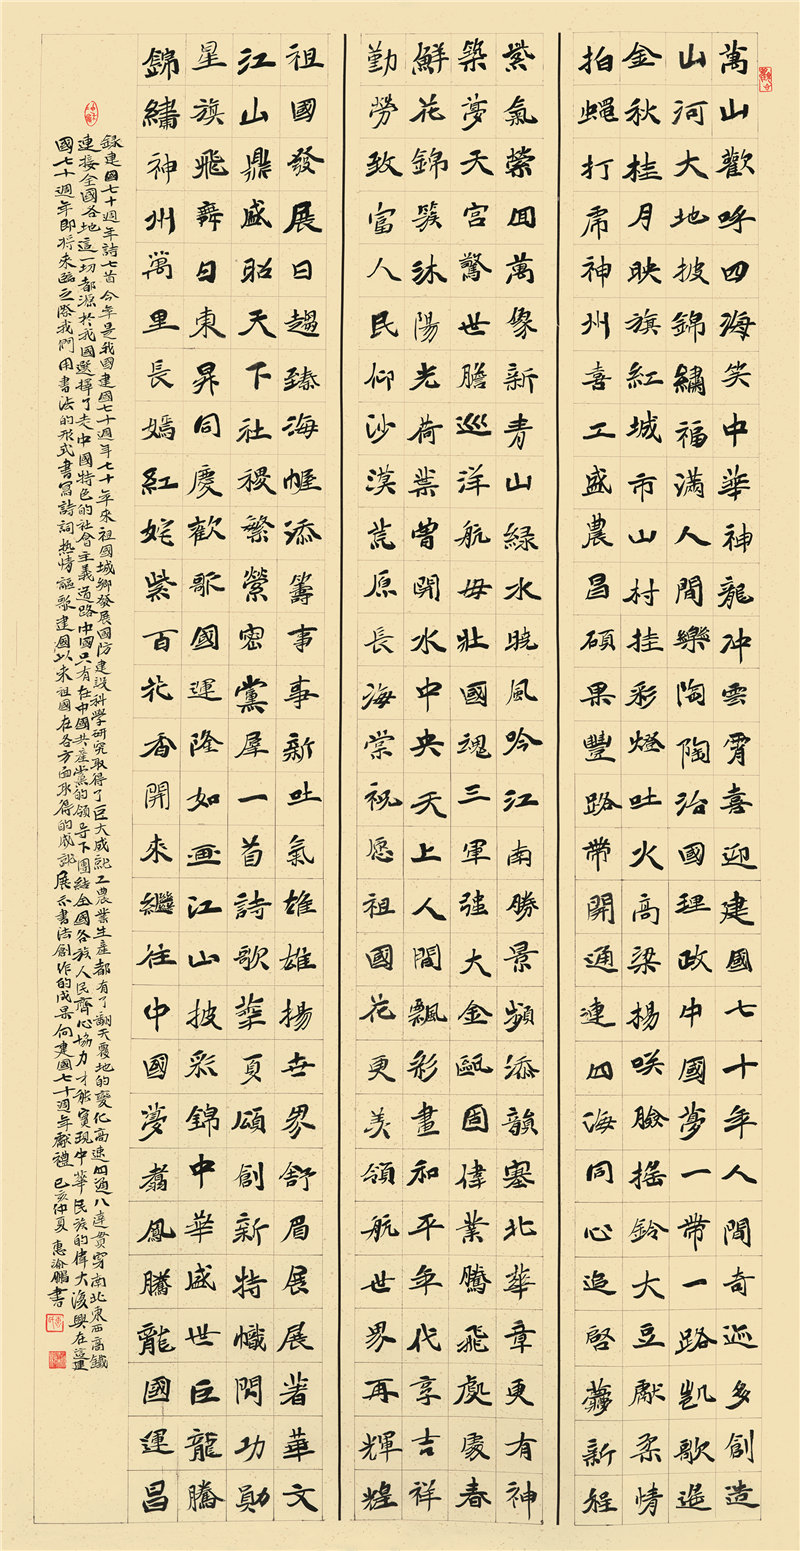 萬山歡呼四海笑中華神龍沖雲霄喜迎建國七十年人間奇迹多創造
山河大地披錦繡福滿人間樂陶陶治國理政中國夢一帶一路凱歌遥
金秋桂月映旗紅城市山村挂彩燈吐火高梁楊咲臉搖鈴大豆獻柔情
拍蠅打虎神州喜工盛農昌碩果豐路帶開通連四海同心追啓夢新程
紫氣縈回萬象新青山綠水曉風吟江南勝景頻添韻塞北華章更有神
築夢天宮驚世膽巡洋航母壯國魂三軍強大金甌固偉業騰飛處處春
鮮花錦簇沐陽光荷葉曾開水中央天上人間飄彩畫和平年代享吉祥
勤勞致富人民仰沙漠荒原長海棠祝愿祖國花更美領航世界再輝煌
祖國發展日趨臻海幄添籌事事新吐氣雄雄揚世界舒眉展展著華文
江山鼎盛昭天下社稷繁縈密黨羣一首詩歌華夏頌創新特幟閃功勛
星旗飛舞日東昇同慶歡歌國運隆如画江山披彩錦中華盛世巨龍騰
錦繡神州萬里長嫣紅姹紫百花香開來繼往中國夢翥鳳騰龍國運昌
錄建國七十週年詩七首今年是我國建國七十週年七十年來祖國城鄉發展國防建設科學研究取得了巨大成就工農業生產都有了翻天覆地的變化高速四通八達貫穿南北東西高鐵
連接全國各地這一切都源於我國選擇了走中國特色的社會主義道路中國只有在中國共產黨的領导下團結全國各族人民齊心協力才能實現中華民族的偉大復興在這建
國七十週年即将来臨之際我們用書法的形式書寫詩詞热情謳歌建國以來祖國在各方面取得的成就展示書法創作的成果向建國七十週年獻禮己亥仲夏惠瀹鵬書